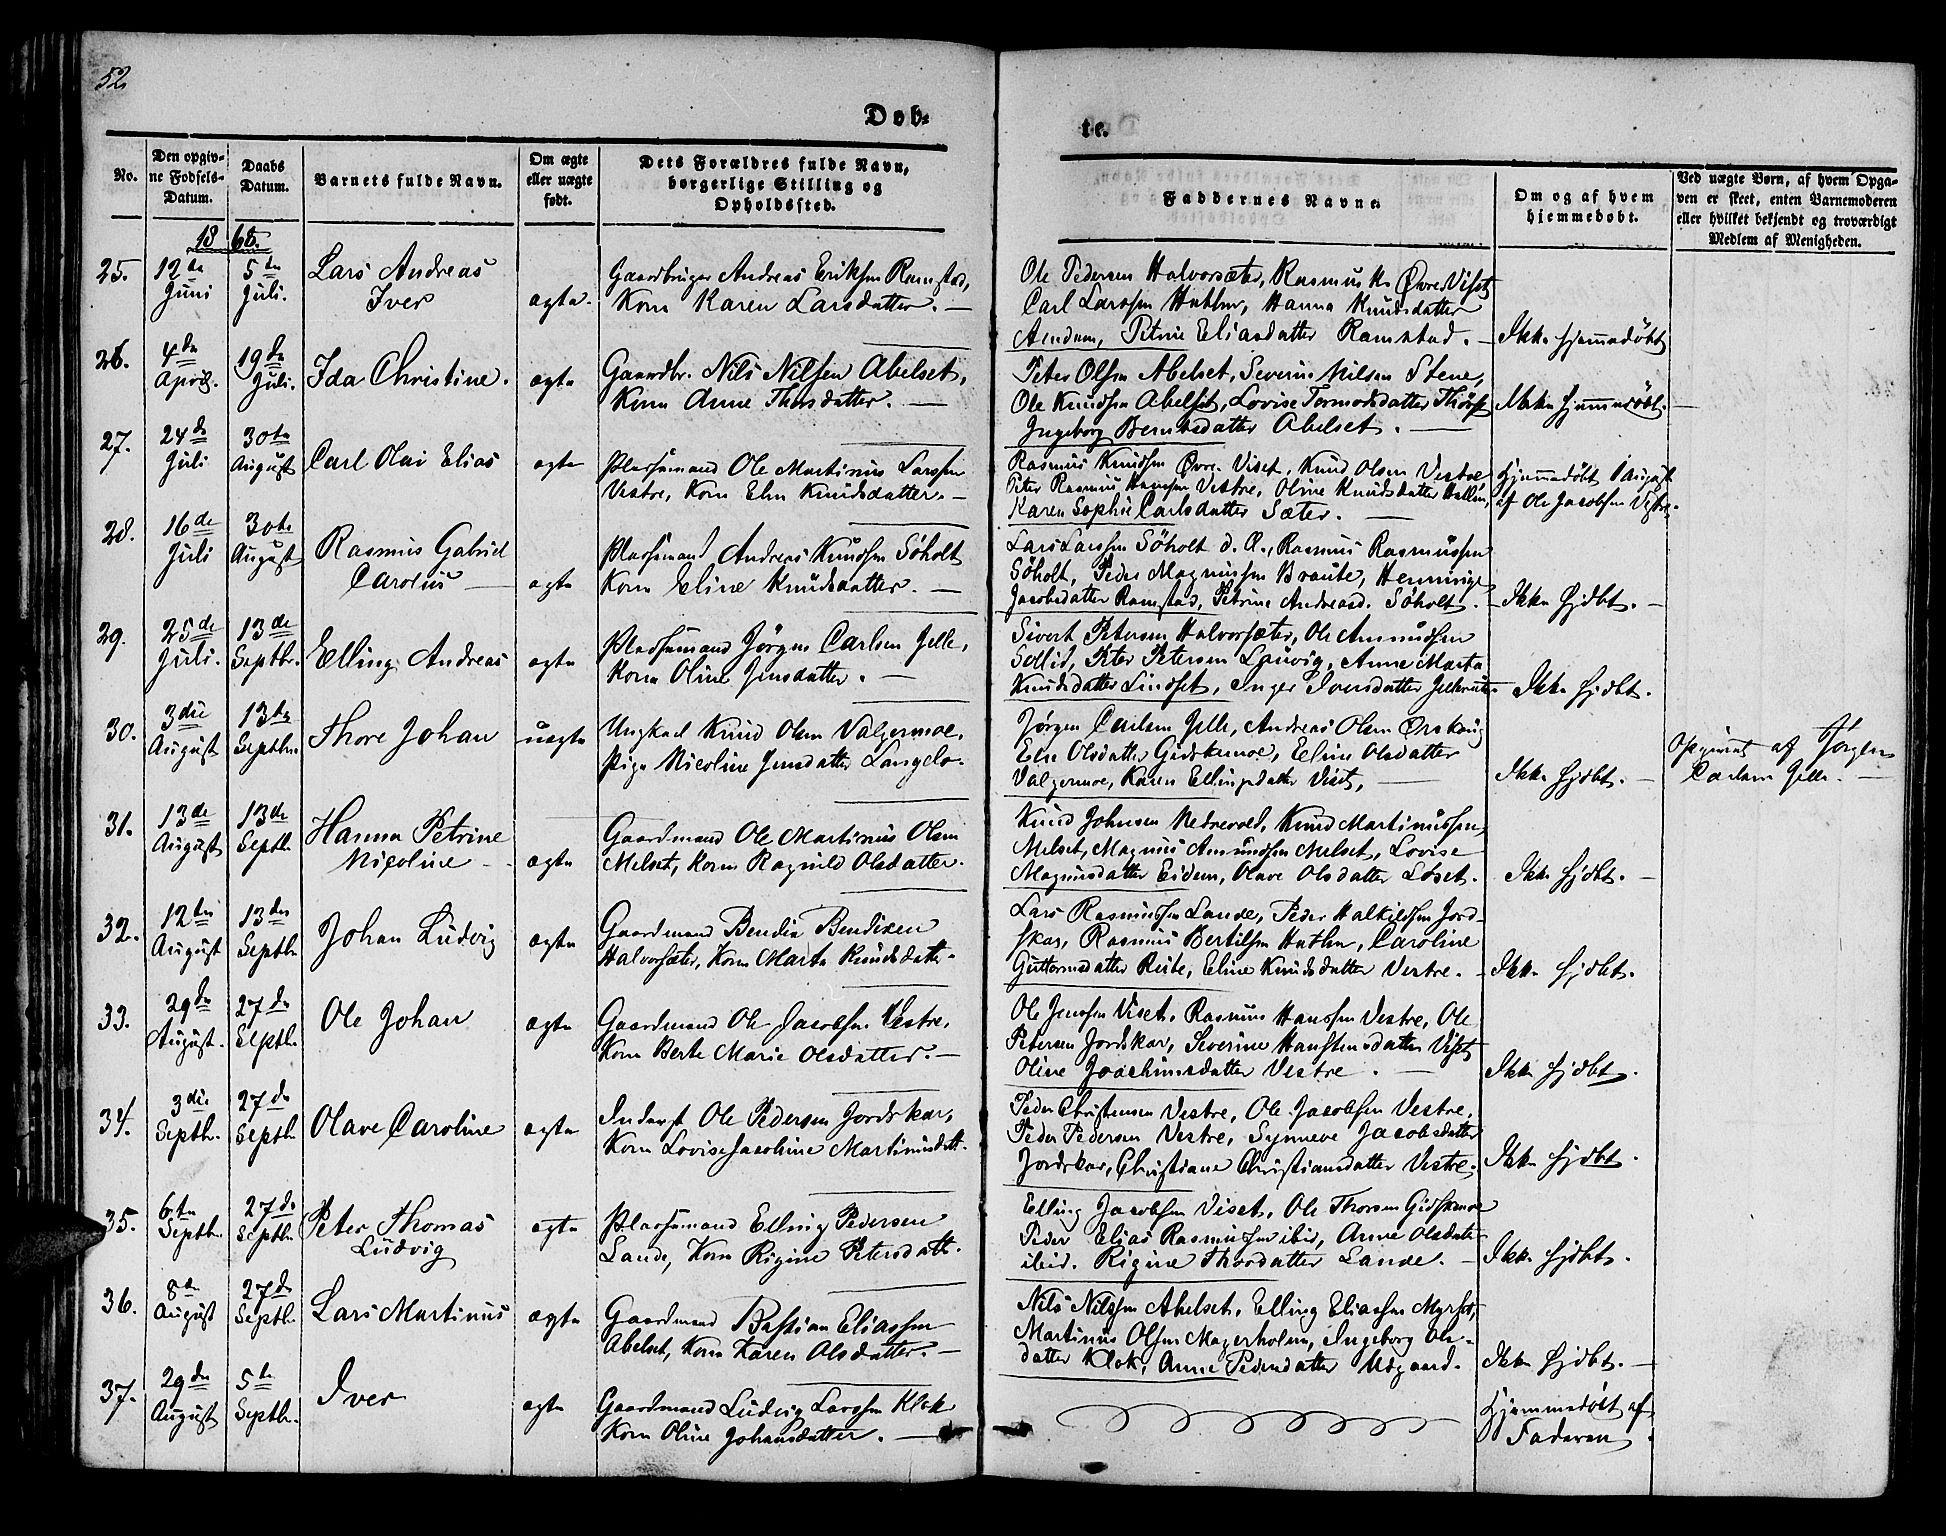 52
Døb-
te.
No.
Den opgivne Fødsels-Datum.
Daabs Datum.
Barnets fulde Navn.
Om ægte eller uægte født.
Dets Forældres fulde Navn, borgerlige Stilling og Opholdssted.
Faddernes Navne.
Om og af hvem hjemmedøbt.
Ved uægte Børn, af hvem Opgaven er skeet, enten Barnemoderen eller hvilket bekjendt og troværdigt Medlem af Menigheden.
25. 12te Juni 5te Juli. Lars Andreas Iver ægte.
Gaardbruger Andreas Eriksen Ramstad,
Kone Karen Larsdatter. —
Ole Pedersen Halvorsæter, Rasmus K. Øvre Viset,
Carl Larssen Hatlen, Hanna Knudsdatter
Amdam, Petrine Eliasdatter Ramstad. — Ikke hjemmedøbt
26. 4de April. 19de Juli. Ida Christine. ægte
Gaardbr. Nils Nilsen Abelset,
Kone Anne Thorsdatter. —
Peter Olsen Abelset, Severin Nilsen Stene,
Ole Knudsen Abelset, Lovise Tormodsdatter
Ingeborg Berntsdatter Abelset. — Ikke hjemmedøbt. —
27. 24de Juli 30te August Carl Olai Elias ægte
Pladsemand Ole Martinus Larssen
Vestre, Kone Elen Knudsdatter. —
Rasmus Knudsen Øvre Viset, Knud Olsen Vestre,
Peter Rasmus Hanssen Vestre, Oline Knudsdatter Hatlen,
Karen Sophie Carlsdatter Sæter. —
Hjemmedøbt 1 August
af Ole Jacobsen Vestre.
28. 16de Juli 30te August Rasmus Gabriel Carolus — ægte
Pladsemand Andreas Knudsen Søholt
Kone Eline Knudsdatter. —
Lars Larssen Søholt d. Æ., Rasmus Rasmussen
Søholt, Peder Magnussen Braute, Henninge
Jacobsdatter Ramstad, Petrine Andreasd. Søholt. — Ikke hjdbt. —
29. 25de Juli. 13de Septbr. Elling Andreas ægte
Pladsemand Jørgen Carlsen Gjelle,
Kone Oline Jensdatter. —
Sivert Petersen Halvorsæter, Ole Amundsen
Sollid, Peter Petersen Lauvig, Anne Marta
Knudsdatter Lindset, Inger Ivarsdatter Ikke hjdbt.
30. 3die August 13te Septbr. Thore Johan uægte
Ungkarl Knud Olsen Valgermoe,
Pige Nicoline Jensdatter Langelo.
Jørgen Carlsen Gjelle, Andreas Olsen Ørskoug
Else Olsdatter Gidskemoe, Eline Olsdatter
Valgermoe, Karen Ellingsdatter Viset, — Ikke hjdbt. —
Opgivet af Jørgen
Carlsen Gjelle. —
31. 13de August 13de Septbr. Hanna Petrine Nicoline — ægte
Gaardmand Ole Martinus Olsen
Melset, Kone Ragnild Olsdatter.
Knud Johnsen Nedrevold, Knud Martinussen
Melset, Magnus Amundsen Melset, Lovise
Magnusdatter Eidem, Olave Olsdatter Løset. Ikke hjdbt. —
32. 12te August 13de Septbr. Johan Ludvig ægte
Gaardmand Bendix Bendixen
Halvorsæter, Kone Marta Knudsdatter.
Lars Rasmussen Lande, Peder Halkildsen Jord-
skar, Rasmus Bertilsen Hatlen, Caroline
Guttormsdatter Reite, Eline Knudsdatter Vestre. — Ikke hjdbt.
33. 29de August. 27de Septbr. Ole Johan ægte
Gaardmand Ole Jacobsen Vestre,
Kone Berte Marie Olsdatter. —
Ole Jenssen Viset, Rasmus Hanssen Vestre, Ole
Petersen Jordskar, Severine Hanstensdatter Viset
Oline Joachimsdatter Vestre. — Ikke hjdbt.
34. 3die Septbr. 27de Septbr. Olave Caroline ægte
Inderst Ole Pedersen Jordskar,
Kone Lovise Jacobine Martinusdatt.
Peder Christensen Vestre, Ole Jacobsen Vestre,
Peder Pedersen Vestre, Synneve Jacobsdatter
Jordskar, Christiane Christiansdatter Vestre. Ikke hjdbt.
35. 6te Septbr. 27de Septbr. Peter Thomas Ludvig ægte
Pladsemand Elling Pedersen
Lande, Kone Regine Petersdatt.
Elling Jacobsen Viset, Ole Thorsen Gidskemoe
Peder Elias Rasmussen ibid, Anne Olsdatter
ibid. Regine Thorsdatter Lande. — Ikke hjdbt.
36. 8de August 27de Septbr. Lars Martinus ægte
Gaardmand Bastian Eliassen
Abelset, Kone Karen Olsdatter. —
Nils Nilssen Abelset, Elling Eliassen Myrset,
Martinus Olsen Magerholm, Ingeborg Ols-
datter Klok, Anne Pedersdatter Udgaard. Ikke hjdbt. —
37. 29de August 5te Septbr. Iver ægte
Gaardmand Ludvig Larssen Klok
Kone Oline Johansdatter. —
Hjemmedøbt af
Faderen.